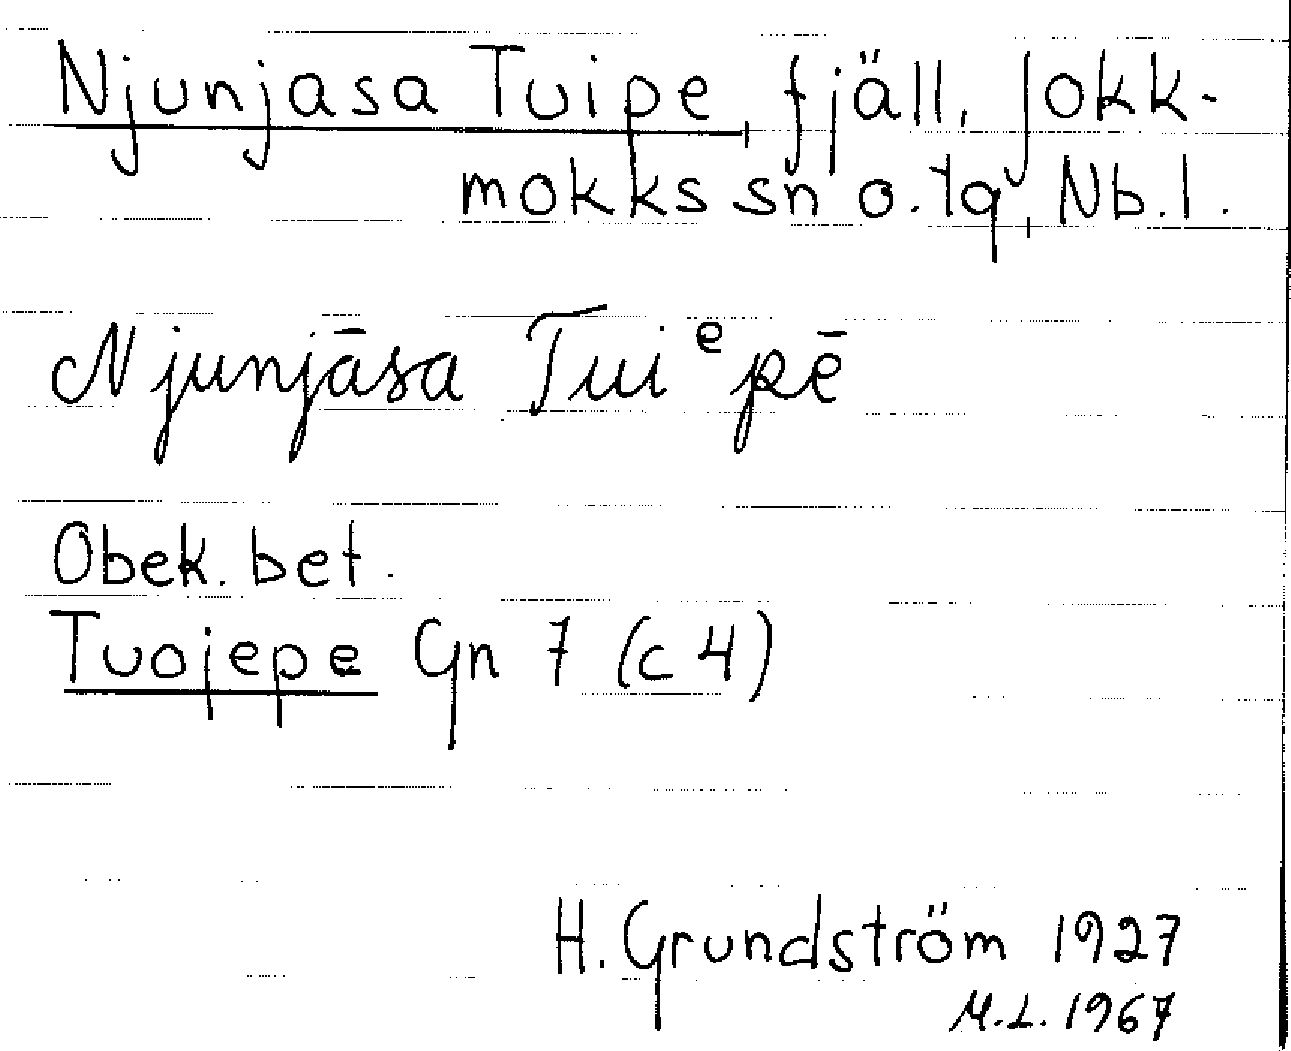 Njunjasa Tuipe, fjäll, Jokk-
mokks sn o. tg, Nb. l.
Njunjāsa Tuiᵉpē
Obek. bet.
Tuojepe Gn 7 (c 4)
H. Grundström 1927
M.L. 1967